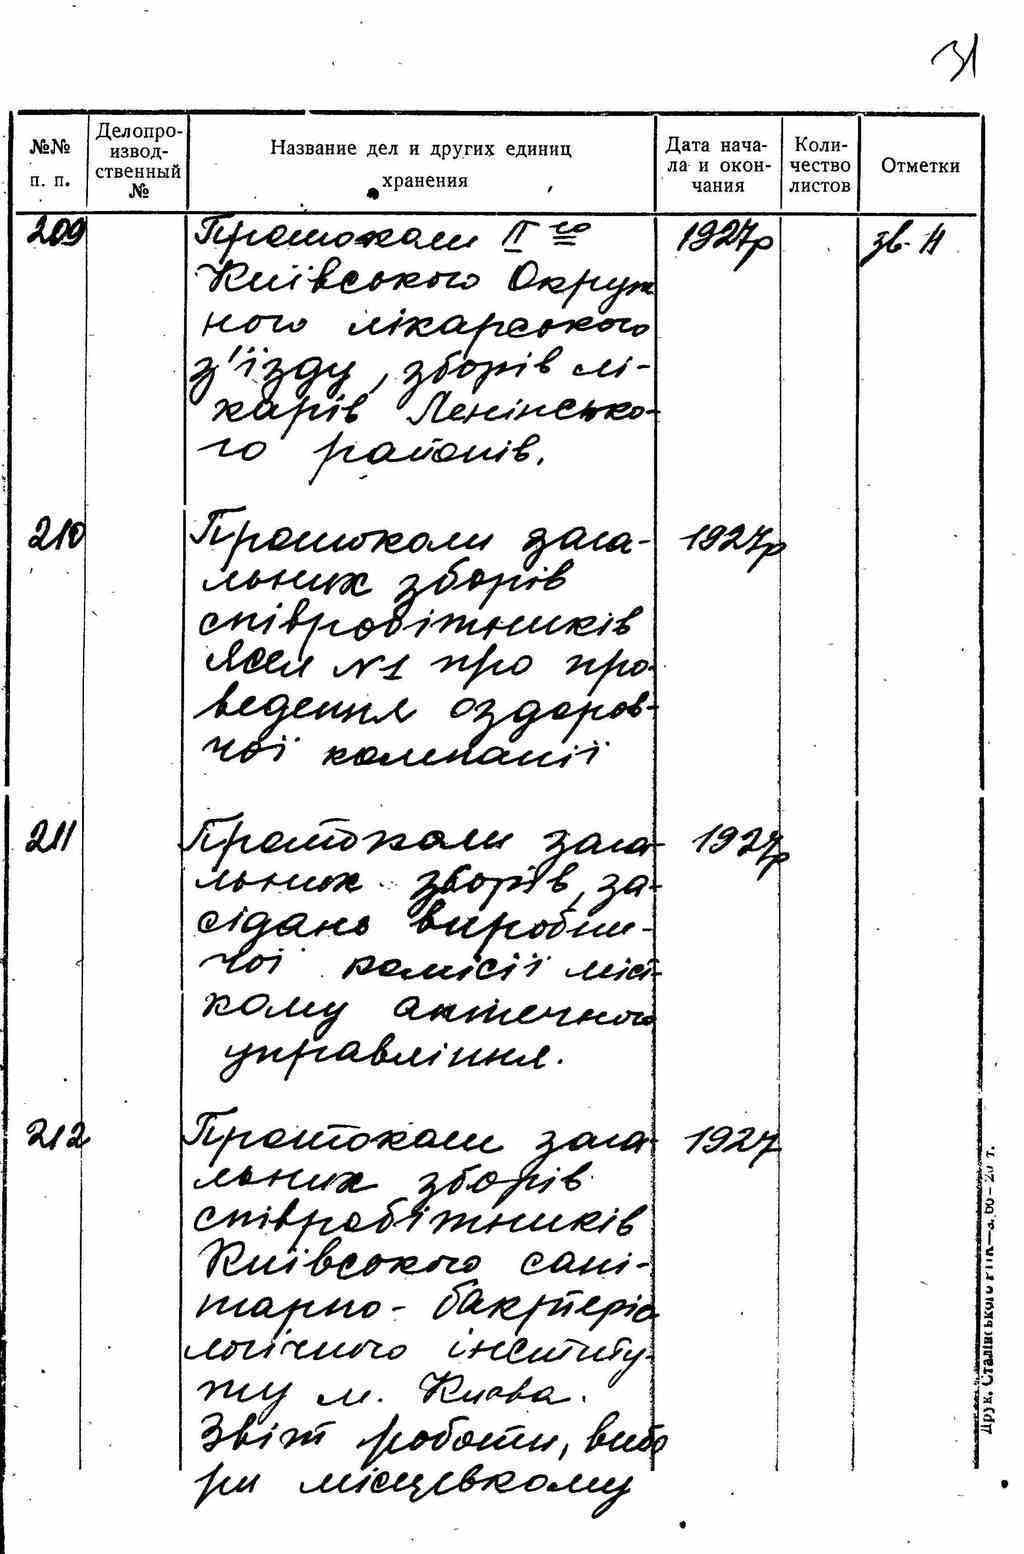 31
№№ п. п.
Делопроизводственный №
Название дел и других единиц хранения
Дата начала и окончания
Количество листов
Отметки
209 Протоколи ІІго 1927р зв. Н
Київського Окруж
ного лікарського
з'їзду, зборів лі-
карів Ленінсько-
го районів.
210 Протоколи зага- 1927р
льних зборів
співробітників
Ясел №1 про про-
ведення оздоров-
чої компанії
211 Протоколи зага- 1927р
льних зборів, за-
сідань виробни-
чої комісії міс
кому аптечного
управління.
212 Протоколи зага- 1927
льних зборів
співробітників
Київського сані-
тарно-бактеріо
логічного інститу-
ту м. Києва.
Звіт роботи, вибо
ри місцевкому
Друк. Сталінського